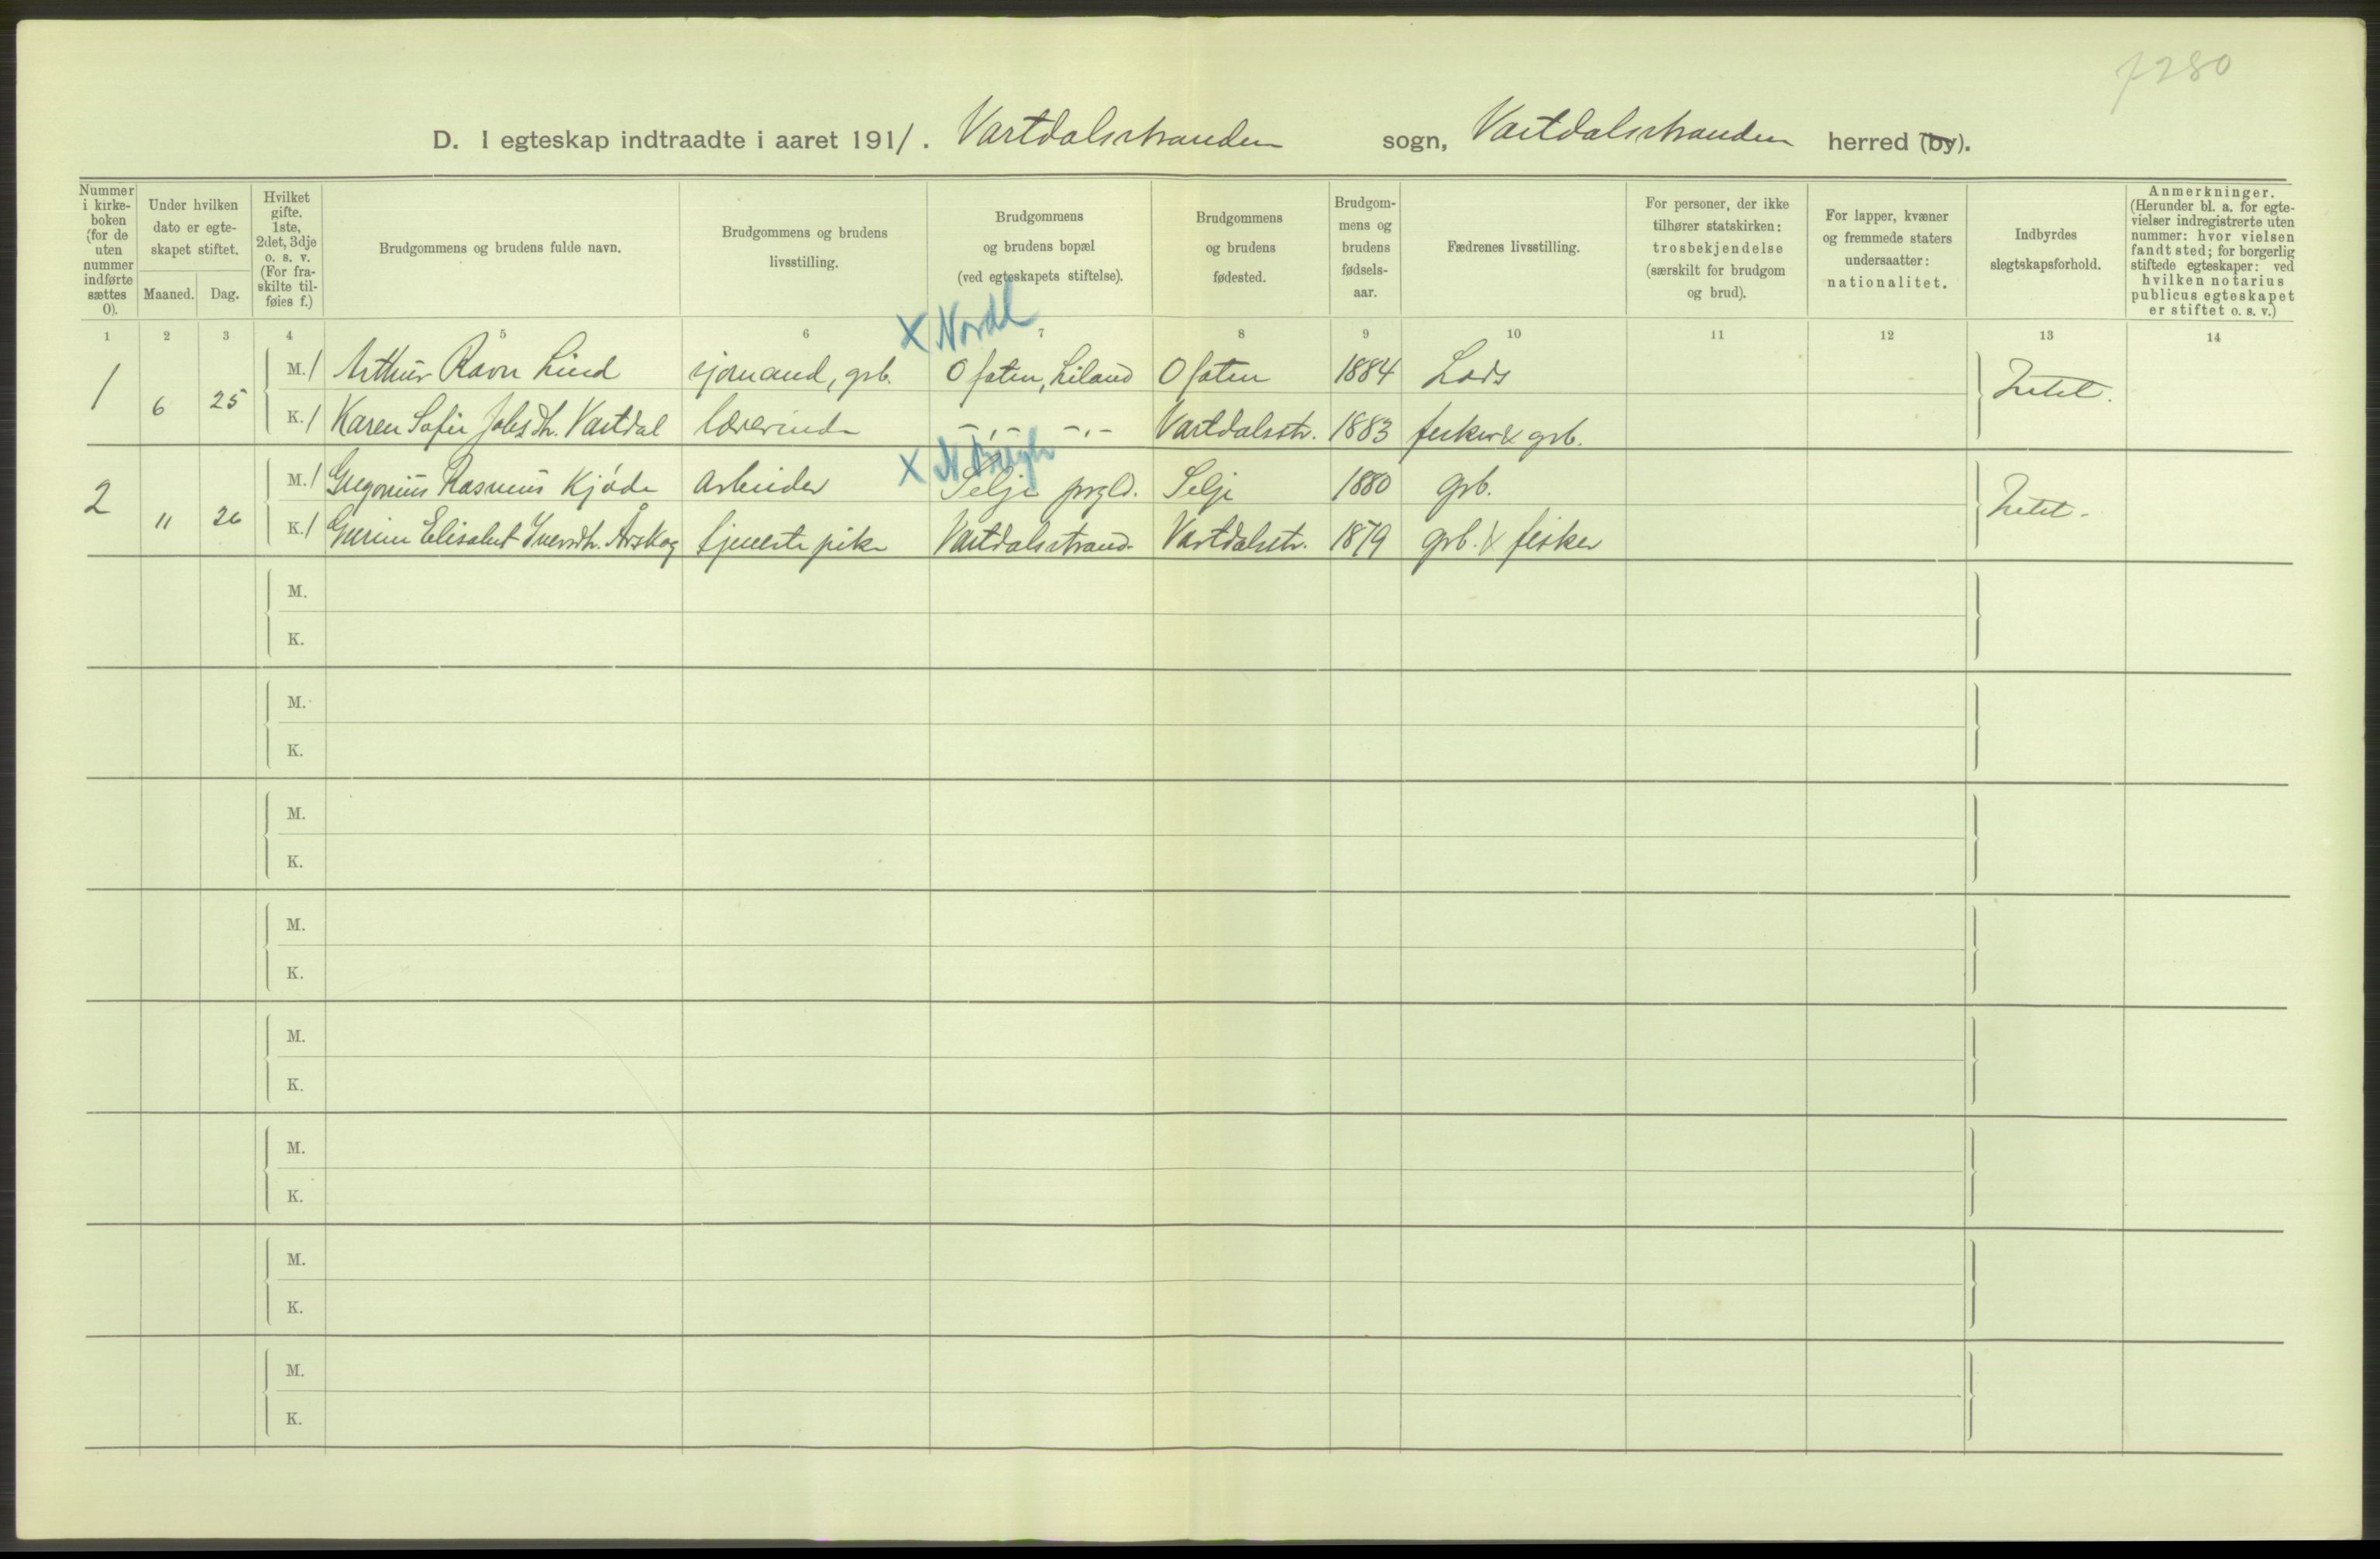 7280
D. I egteskap indtraadte i aaret 1911. Vartdalsstranden sogn, Vartdalsstranden herred (by).
Nummer i kirke-boken (for de uten nummer indførte sættes 0).
Under hvilken dato er egte-skapet stiftet.
Maaned. Dag.
Hvilket gifte. 1ste, 2det, 3dje o. s. v. (For fra-skilte til-føies f.)
Brudgommens og brudens fulde navn.
Brudgommens og brudens livsstilling.
Brudgommens og brudens bopæl (ved egteskapets stiftelse).
Brudgommens og brudens fødested.
Brudgom-mens og brudens fødsels-aar.
Fædrenes livsstilling.
For personer, der ikke tilhører statskirken: trosbekjendelse (særskilt for brudgom og brud).
For lapper, kvæner og fremmede staters undersaatter: nationalitet.
Indbyrdes slegtskapsforhold.
Anmerkninger. (Herunder bl. a. for egte-vielser indregistrerte uten nummer: hvor vielsen fandt sted; for borgerlig stiftede egteskaper: ved hvilken notarius publicus egteskapet er stiftet o. s. v.)
1 2 3 4 5 6 7 8 9 10 11 12 13 14
X Nordl
1 6 25 M. 1 Arthur Ravn Lind sjømand, grb. Ofoten, Liland Ofoten 1884 Lods Intet.
K. 1 Karen Sofie Jobsdtr. Vartdal lærerinde -"- -"- Vartdalsstr. 1883 fisker & grb.
X N.
2 11 26 M. 1 Gregorius Rasmus Kjøde arbeider Selje prgld. Selje 1880 grb. Intet.
K. 1 Elisabet Iversdtr. Årskog tjenestepike Vartdalsstrand. Vartdalsstr. 1879 grb. & fisker
M.
K.
M.
K.
M.
K.
M.
K.
M.
K.
M.
K.
M.
K.
M.
K.